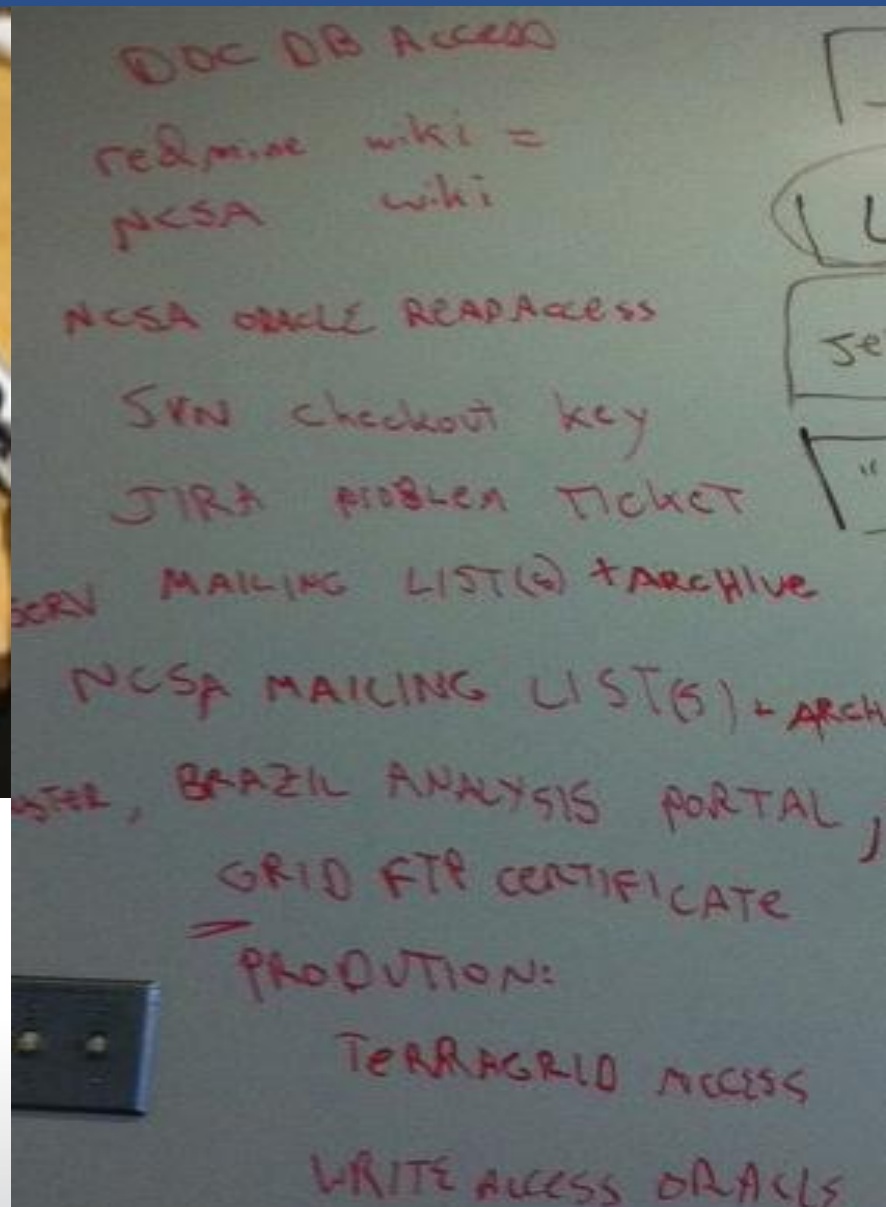 DOC DB Access
redmine wiki =
NCSA wiki
NCSA ORACLE READ Access
SVN checkout key
JIRA PROBLEM TICKET
SERV MAILING LIST(S) + ARCHIVE
NCSA MAILING LIST(S) + ARCH
STER, BRAZIL ANALYSIS PORTAL,
GRID FTP CERTIFICATE
PRODUTION:
TERRAGRID ACCESS
WRITE ACCESS ORACLE
Se